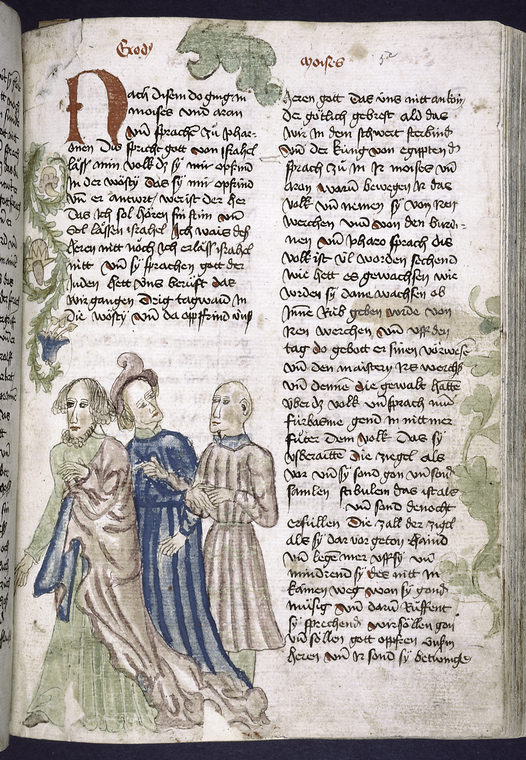 Exody
moises
Nach disem do ging in
moises und aran
un sprach zu phar-
onen Das spricht gott von israhel
lass min volk dz sy mir opfrind
In der wösty das sy mir opfrind
un er antwurt wer ist der her
das ich sol hören sin stim un
sol lassen israhel Ich wais des
heren nitt noch ich erlass israhel
nitt un sy sprachen gott der
Juden hett uns berüft das
wir gangen drig tagwaid in
die wösty un da opffrind uns
heren gott das uns nitt ankom
der götlich gebrest ald das
wir in dem schwert sterbind
un der küng von egipten
sprach zu in Ir moises un
aran warum bewegen Ir das
volk un nemen sy von iren
werchen un von den burdi-
nen un pharo sprach das
volk ist vil worden sechend
wie hett es gewachsen wie
werden sy dane wachsen ob
Inne Rüb geben wirde von
Iren werchen un uff den
tag do gebott er sinen
un den maistern Irs werchs
un denne die gewalt hatte
über dz volk un sprach nun
fürbasme gend in nit mer
füter dem volk Das sy
die ziegel als
vor un sy sond gon un sond
samlen stibulam das ist als
un sond denocht
erfüllen Die zall der zigel
als sy dar vor geton haind
un lege mer uff sy un
mindrend sy des nitt In
kainen weg won sy gond
müsig un darum Rüffent
sy sprechend wir söllen gon
un söllen gott opfren unsrm
heren un Ir sond sy betwinge